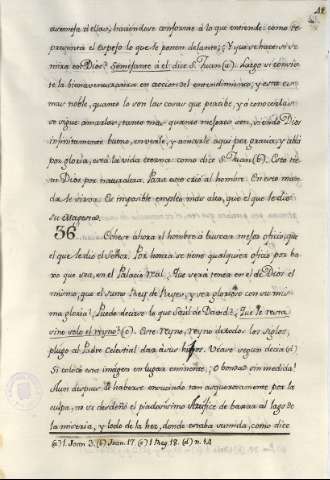 12
asemeja à ellas, haciendose conforme à lo que entiende: como re
presenta el espejo lo que le ponen delante; ¿Y què se hace si se
mira con Dios? Semejante à el dice S. Juan (a). Luego si consis
te la bienaventuranza en accion del entendimiento, y esta es
mas noble, quanto lo son las cosas que percibe, y a conocerlas
se sigue amarlas, tanto mas quanto mejores son, viendo Dios
infinitamente bueno, en verle, y amarle aqui por gracia, y allà
por gloria, està la vida eterna: como dice S. Juan (b). Este te
tan Dios por naturaleza. Para este criò al hombre. En esto man
da le sirva. Es imposible empleo mas alto, que el que le diò
su Magestad.
36 Echese ahora el hombre à buscar mejor oficio, que
el que le diò el Señor. Por honra se tiene qualquiera oficio por ba
xo que sea, en el Palacio real. ¿Què serà tener en el de Dios el
mismo, que el sumo Rey de Reyes, y ser glorioso con su mis
ma gloria? Puede decirse lo que Saul de David: ¿Què le resta
sino solo el reyno? (c). Este reyno, reyno de todos los siglos,
plugo al Padre Celestial dar à sus hijos. Usase segun decia (d)
Si colocò esta imagen en lugar eminente. ¡O bondad sin medida!
Aun despues de haberse ensuciado tan asquerosamente por la
culpa, no se desdeñò el piadosisimo Artifice de baxar al lago de
la miseria, y lodo de la hez, donde estaba sumida, como dice
(a) 1. Joan. 3. (b) Joan. 17. (c) 1. Reg. 18. (d) n. 14